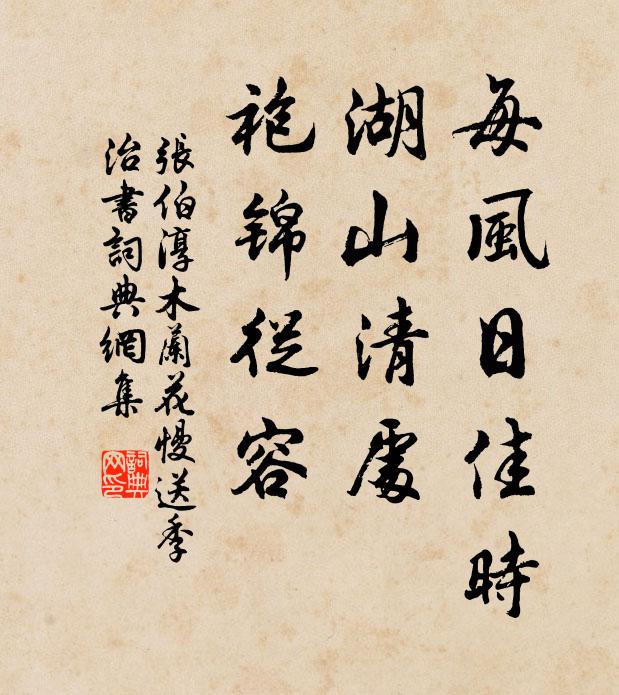 每風日佳時
湖山清處
袍錦從容
張伯淳木蘭花慢送季
治書詞典網集
詞典
网印